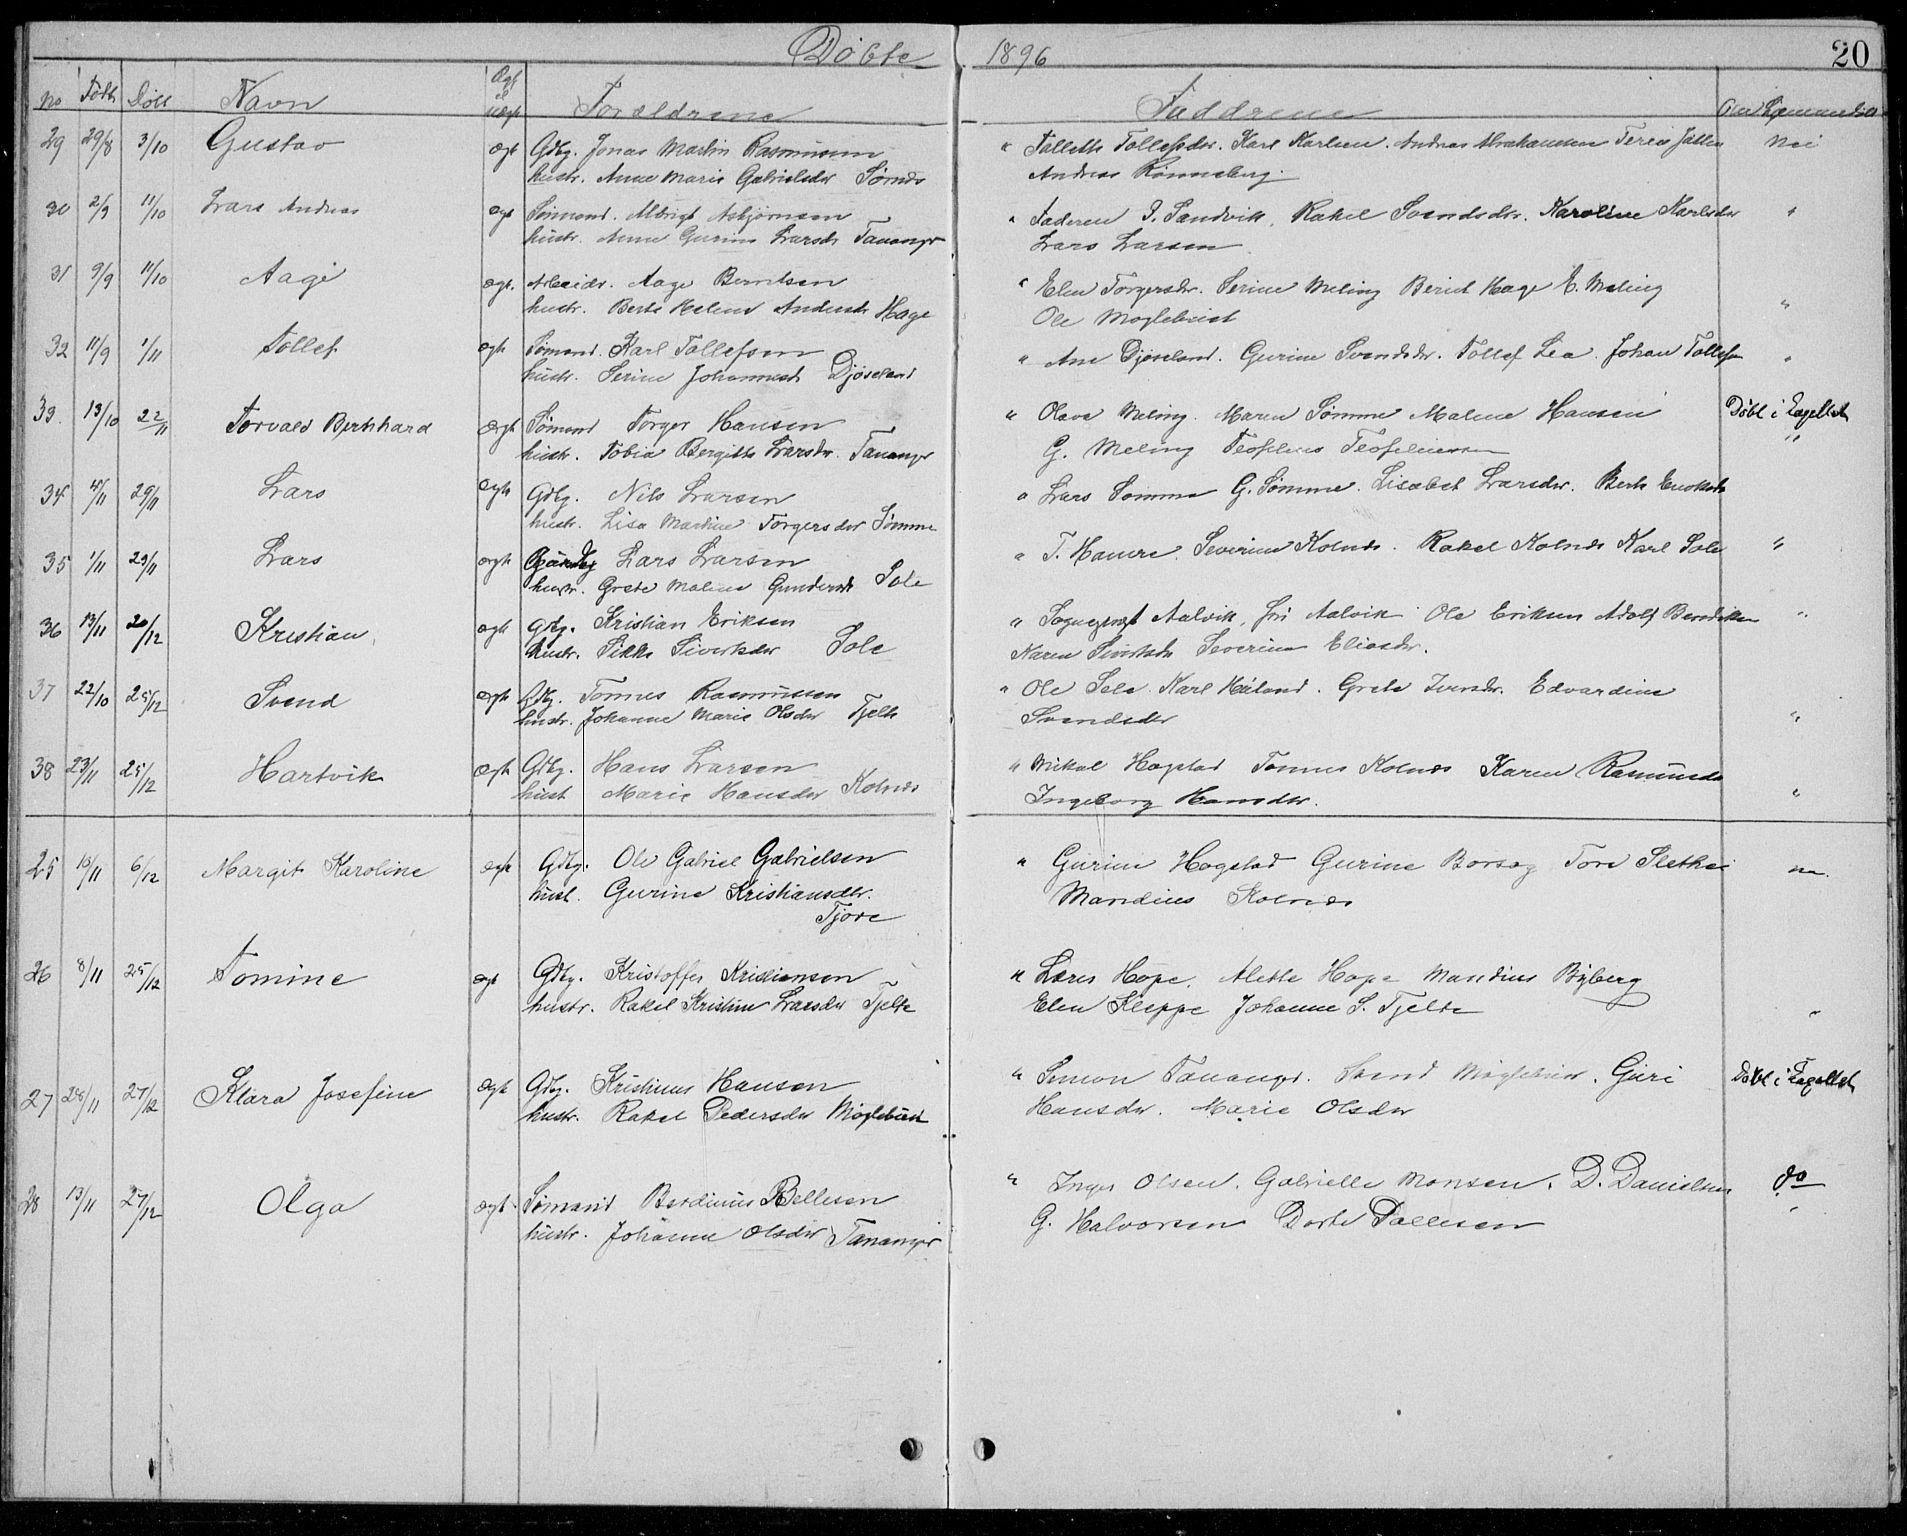 Døbte 1896 20
No Født Døbt Navn Ægt el uægt Forældrene Faddrene
29 29/8 3/10 Gustav ægt Gdbg. Jonas Martin Rasmussen " Tolleth Tollefsdr. Karl Karlsen. Andreas Abrahamsen Jåtten Nei
hustr. Anne Marie Gabrielsdr Sørnes Andreas Rønneberg.
30 2/9 11/10 Lars Andreas ægt Sømand. Albrigt Asbjørnsen " Faderen P. Sandvik, Rakel Svendsdr. Karoline Karlsdr "
hustr. Anne Gurine Larsdr Tananger Lars Larsen
31 9/9 11/10 Aage ægt. Arbeidr. Aage Berntsen " Elen Torgersdr. Serine Meling Berint Hage E. Meling
hustr. Berte Helene Andersdr Hage Ole Myglebust "
32 11/9 1/11 Tollef ægt Sømand. Karl Tollefsen " Ane Djøseland. Gurine Svendsdr. Tollef Lea. Johan Tollefsen "
hustr. Serine Johannesdr Djøseland
33. 13/10 22/11 Torvald Bernhard ægt Sømand Torger Hansen " Olava Meling. Maren Sømme Malene Hansen Døbt i Kapellet
hustr. Tobia Bergitte Larsdr. Tananger G. Meling Teofilus Teofilusen "
34 4/11 29/11 Lars ægt Gdbg. Nils Larsen " Lars Sømme G. Sømme. Lisabet Larsdr. Berte Enoksdr
hustr. Lisa Martine Torgersdr Sømme
35 1/11 29/11 Lars ægt Gdbg Lars Larsen " T. Haavre Severine Kolnes. Rakel Kolnes Karl Sole "
hustr. Grete Malene Gundersdr Sole
36 13/11 20/12 Kristian ægt Gdbg. Kristian Eriksen " Sogneprest Aalvik, fru Aalvik Ole Eriksen Adolf Berntsen "
hustr. Sikke Sivertsdr Sole Karen Sivertsdr Severine Eliasdr.
37 22/10 25/12 Svend ægt Gdbg. Tønnes Rasmussen " Ole Sele Karl Håland. Grete Iversdr. Edvardine
hustr. Johanne Marie Olsdr Tjelte Svendsdr "
38 23/11 25/12 Hartvik ægt Gdbg. Hans Larsen " Mikal Hogstad Tønnes Kolnes Karen Rasmusdr
hust Marie Hansdr Kolnes Ingeborg Hansdr. "
25 16/11 6/12 Margit Karoline ægt Gdbg. Ole Gabriel Gabrielsen " Gurine Hogstad Gurine Borsøy Tore Slethei
hust. Gurine Kristiansdr. Mandius Kolnes
Tjore
26 8/11 25/12 Tomine ægt Gdbg. Kristoffer Kristiansen " Lars Hope. Alette Hope Mandius Byberg
hustr. Rakel Kristine Larsdr Tjelte Elen Kleppe Johanne S. Tjelte "
27 28/11 27/12 Klara Josefine ægt Gdbg. Kristinus Hansen " Simon Tananger. Svend Myglebust. Guri Døbt i Kapellet
hustr. Rakel Pedersdr Myglebust Hansdr. Marie Olsdr
28 13/11 27/12 Olga ægt Sømand Berdinus Bellesen " Inger Olsen. Gabrielle Monsen. D. Danielsen do
hustr. Johanne Olsdr Tananger G. Halvorsen Dorte Pallesen "